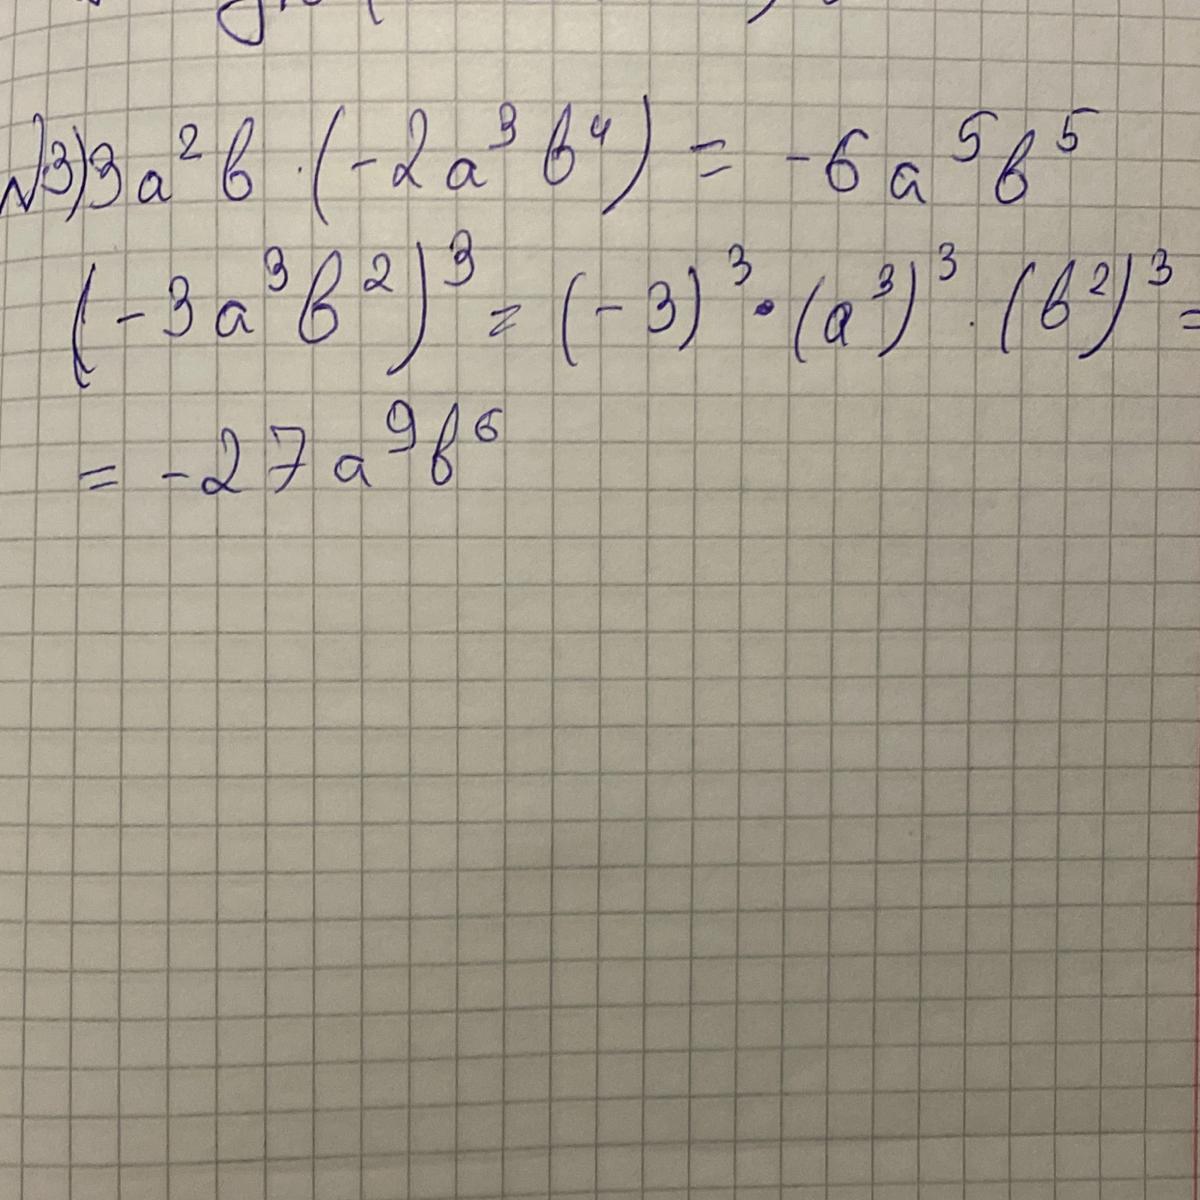 №3) 3a²b · (-2a³b⁴) = -6a⁵b⁵
(-3a³b²)³ = (-3)³ · (a³)³ · (b²)³ =
= -27a⁹b⁶